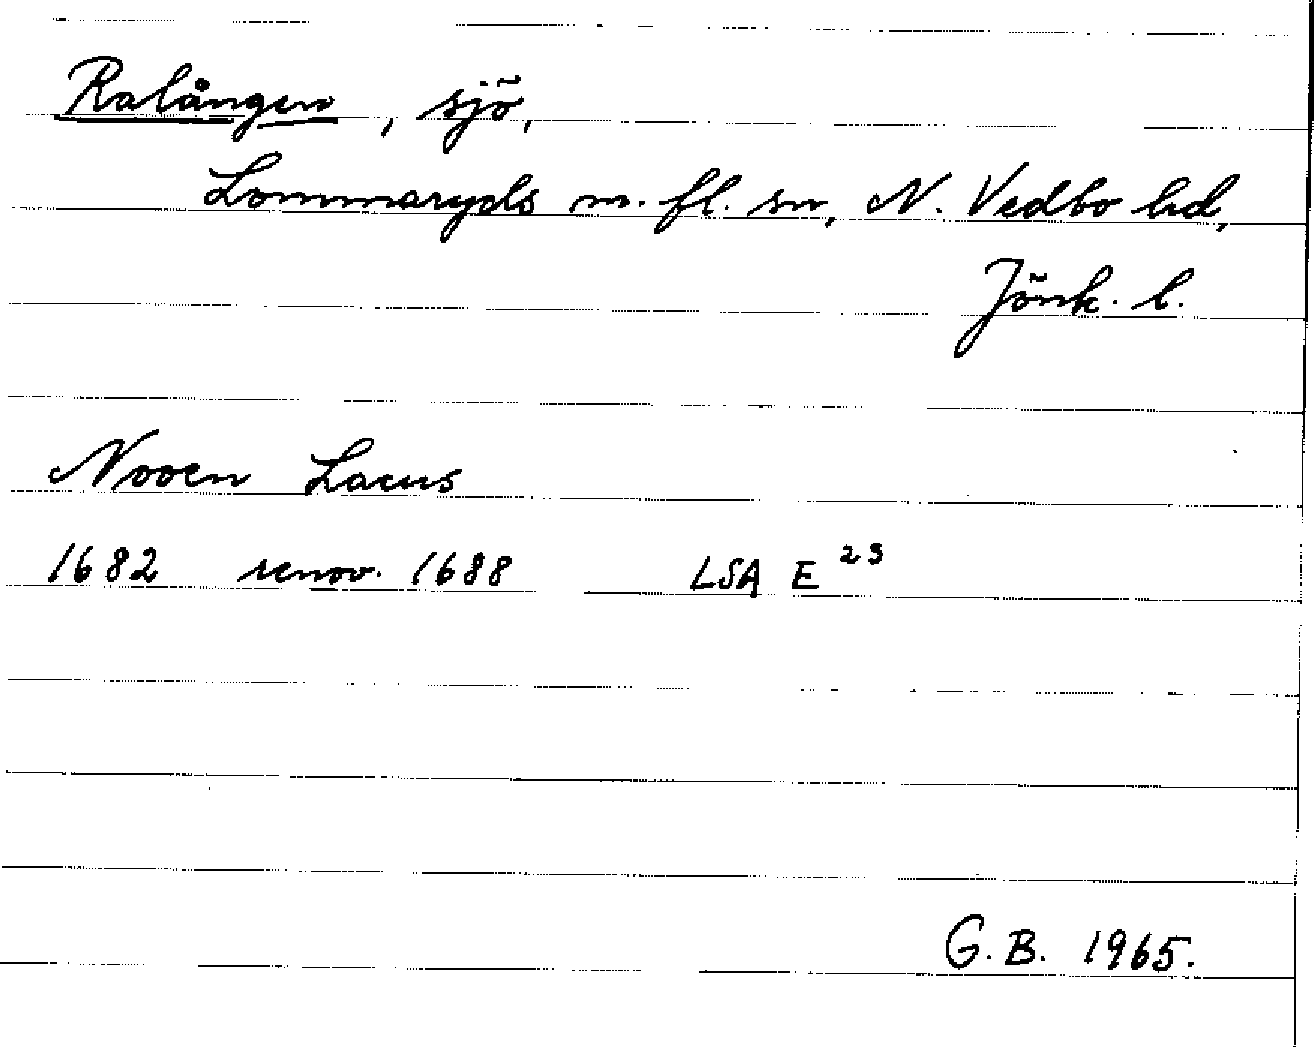 Ralången, sjö,
Lommaryds m. fl. sn, N. Vedbo hd,
Jönk. l.
Nooen Lacus
1682 renov. 1688 LSA E 23
G. B. 1965.